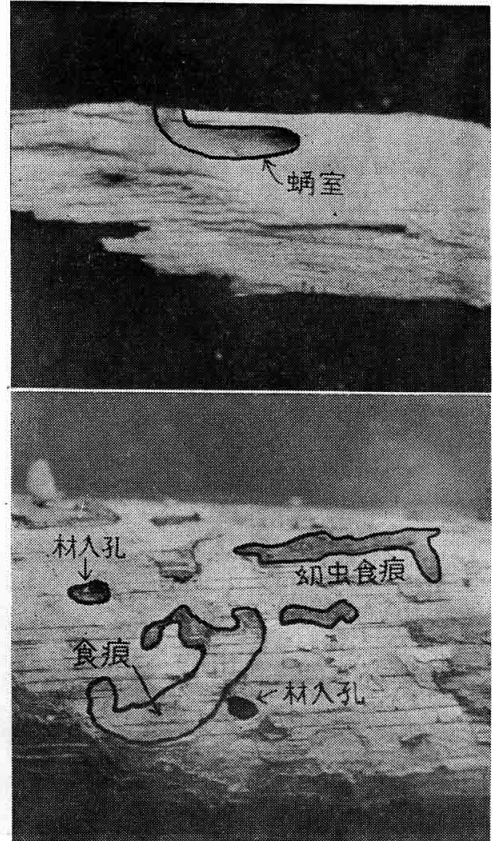 蛹室
材入孔
幼虫食痕
食痕
材入孔